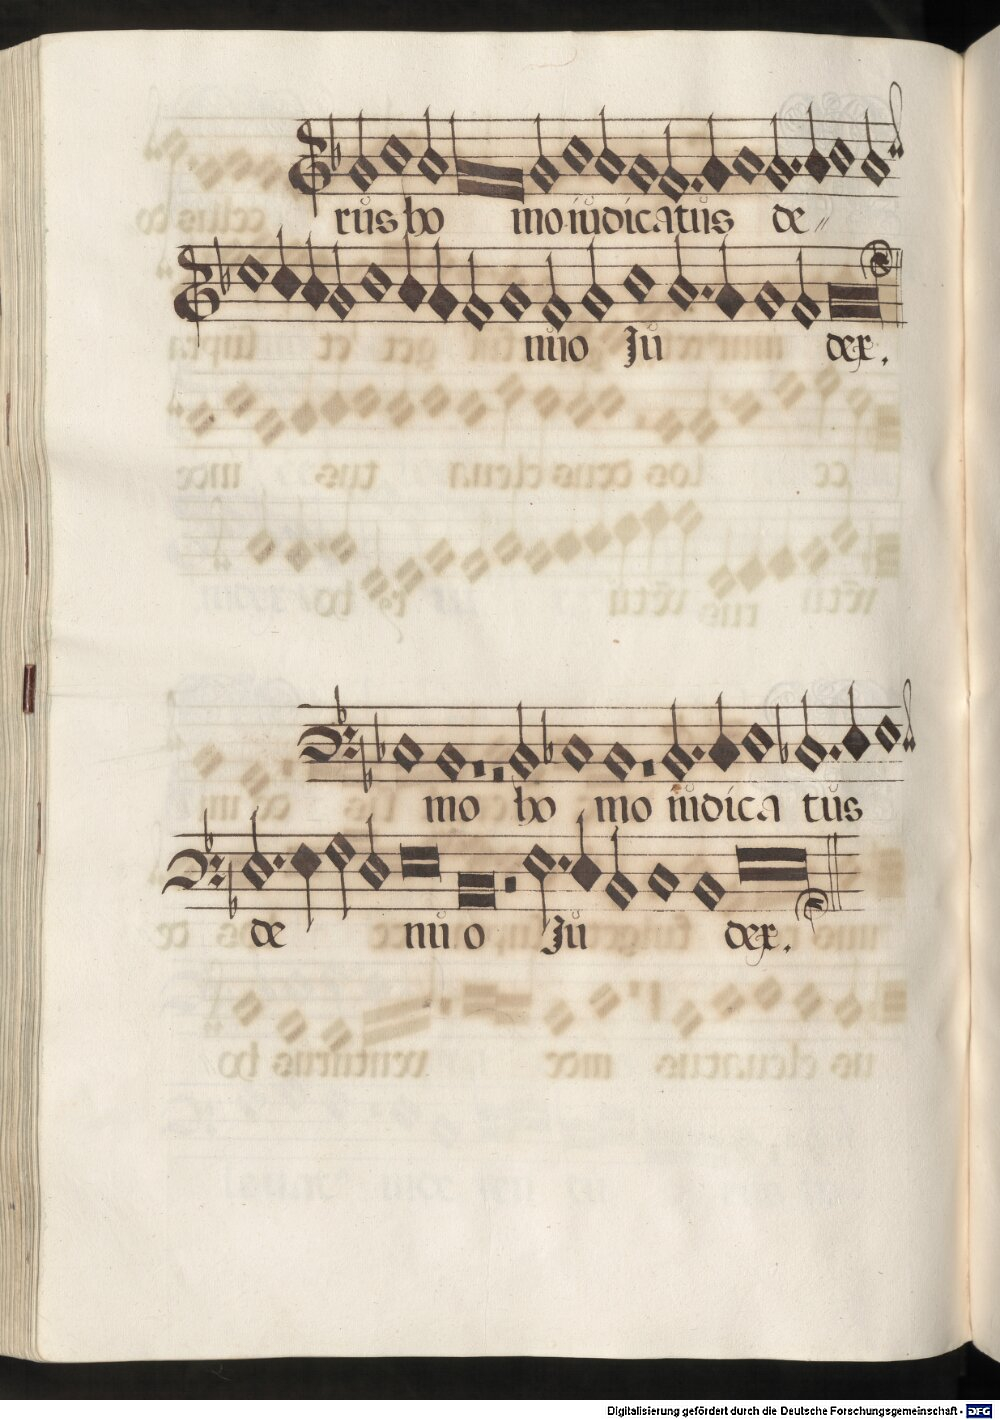 rus ho mo iudicatus de //
nuo Ju dex.
mo ho mo iudica tus
de nu o Ju dex.
Digitalisierung gefördert durch die Deutsche Forschungsgemeinschaft - DFG